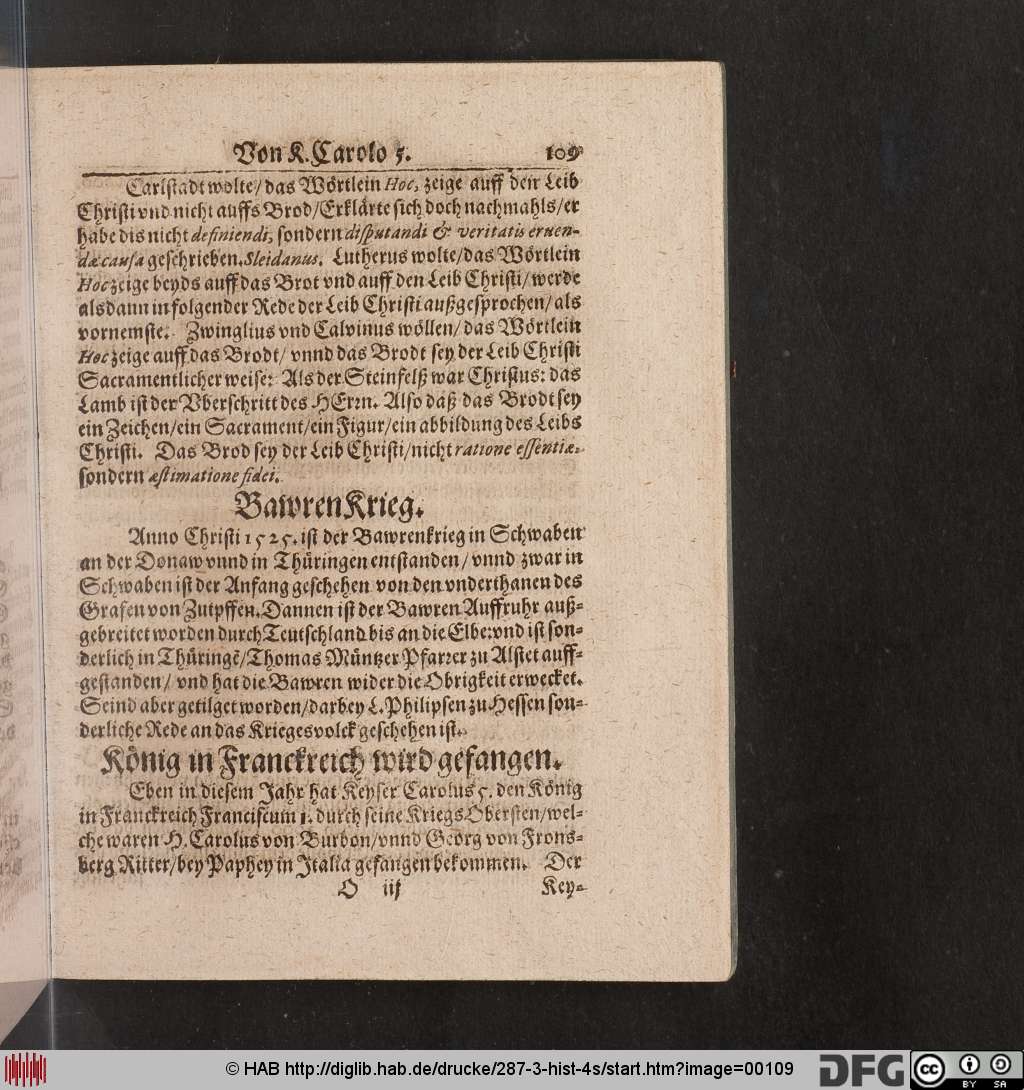 Von K. Carolo 5. 109
Carlstadt wolte/ das Wörtlein Hoc, zeige auff den Leib
Christi vnd nicht auffs Brod/ Erklärte sich doch nachmahls/ er
habe dis nicht definiendi, sondern disputandi & veritatis eruen-
dæ causa geschrieben. Sleidanus. Lutherus wolte/ das Wörtlein
Hoc zeige beyds auff das Brot vnd auff den Leib Christi/ werde
alsdann in folgender Rede der Leib Christi außgesprochen/ als
vornemste. Zwinglius vnd Calvinus wöllen/ das Wörtlein
Hoc zeige auff das Brodt/ vnnd das Brodt sey der Leib Christi
Sacramentlicher weise: Als der Steinfelß war Christus: das
Lamb ist der Vberschritt des HErrn. Also daß das Brodt sey
ein Zeichen/ ein Sacrament/ ein Figur/ ein abbildung des Leibs
Christi. Das Brod sey der Leib Christi/ nicht ratione essentiæ,
sondern æstimatione fidei.
BawrenKrieg.
Anno Christi 1525. ist der Bawrenkrieg in Schwaben
an der Donaw vnnd in Thüringen entstanden/ vnnd zwar in
Schwaben ist der Anfang geschehen von den vnderthanen des
Grafen von Zutpffen. Dannen ist der Bawren Auffruhr auß-
gebreitet worden durch Teutschland bis an die Elbe: vnd ist son-
derlich in Thüringē/ Thomas Müntzer Pfarrer zu Alstet auff-
gestanden/ vnd hat die Bawren wider die Obrigkeit erwecket.
Seind aber getilget worden/ darbey L. Philipsen zu Hessen son-
derliche Rede an das Kriegesvolck geschehen ist.
König in Franckreich wird gefangen.
Eben in diesem Jahr hat Keyser Carolus 5. den König
in Franckreich Franciscum 1. durch seine KriegsObersten/ wel-
che waren H. Carolus von Burbon/ vnnd Georg von Frons-
berg Ritter/ bey Paphey in Italia gefangen bekommen. Der
O iij Key-
© HAB http://diglib.hab.de/drucke/287-3-hist-4s/start.htm?image=00109
DFG
cc BY SA